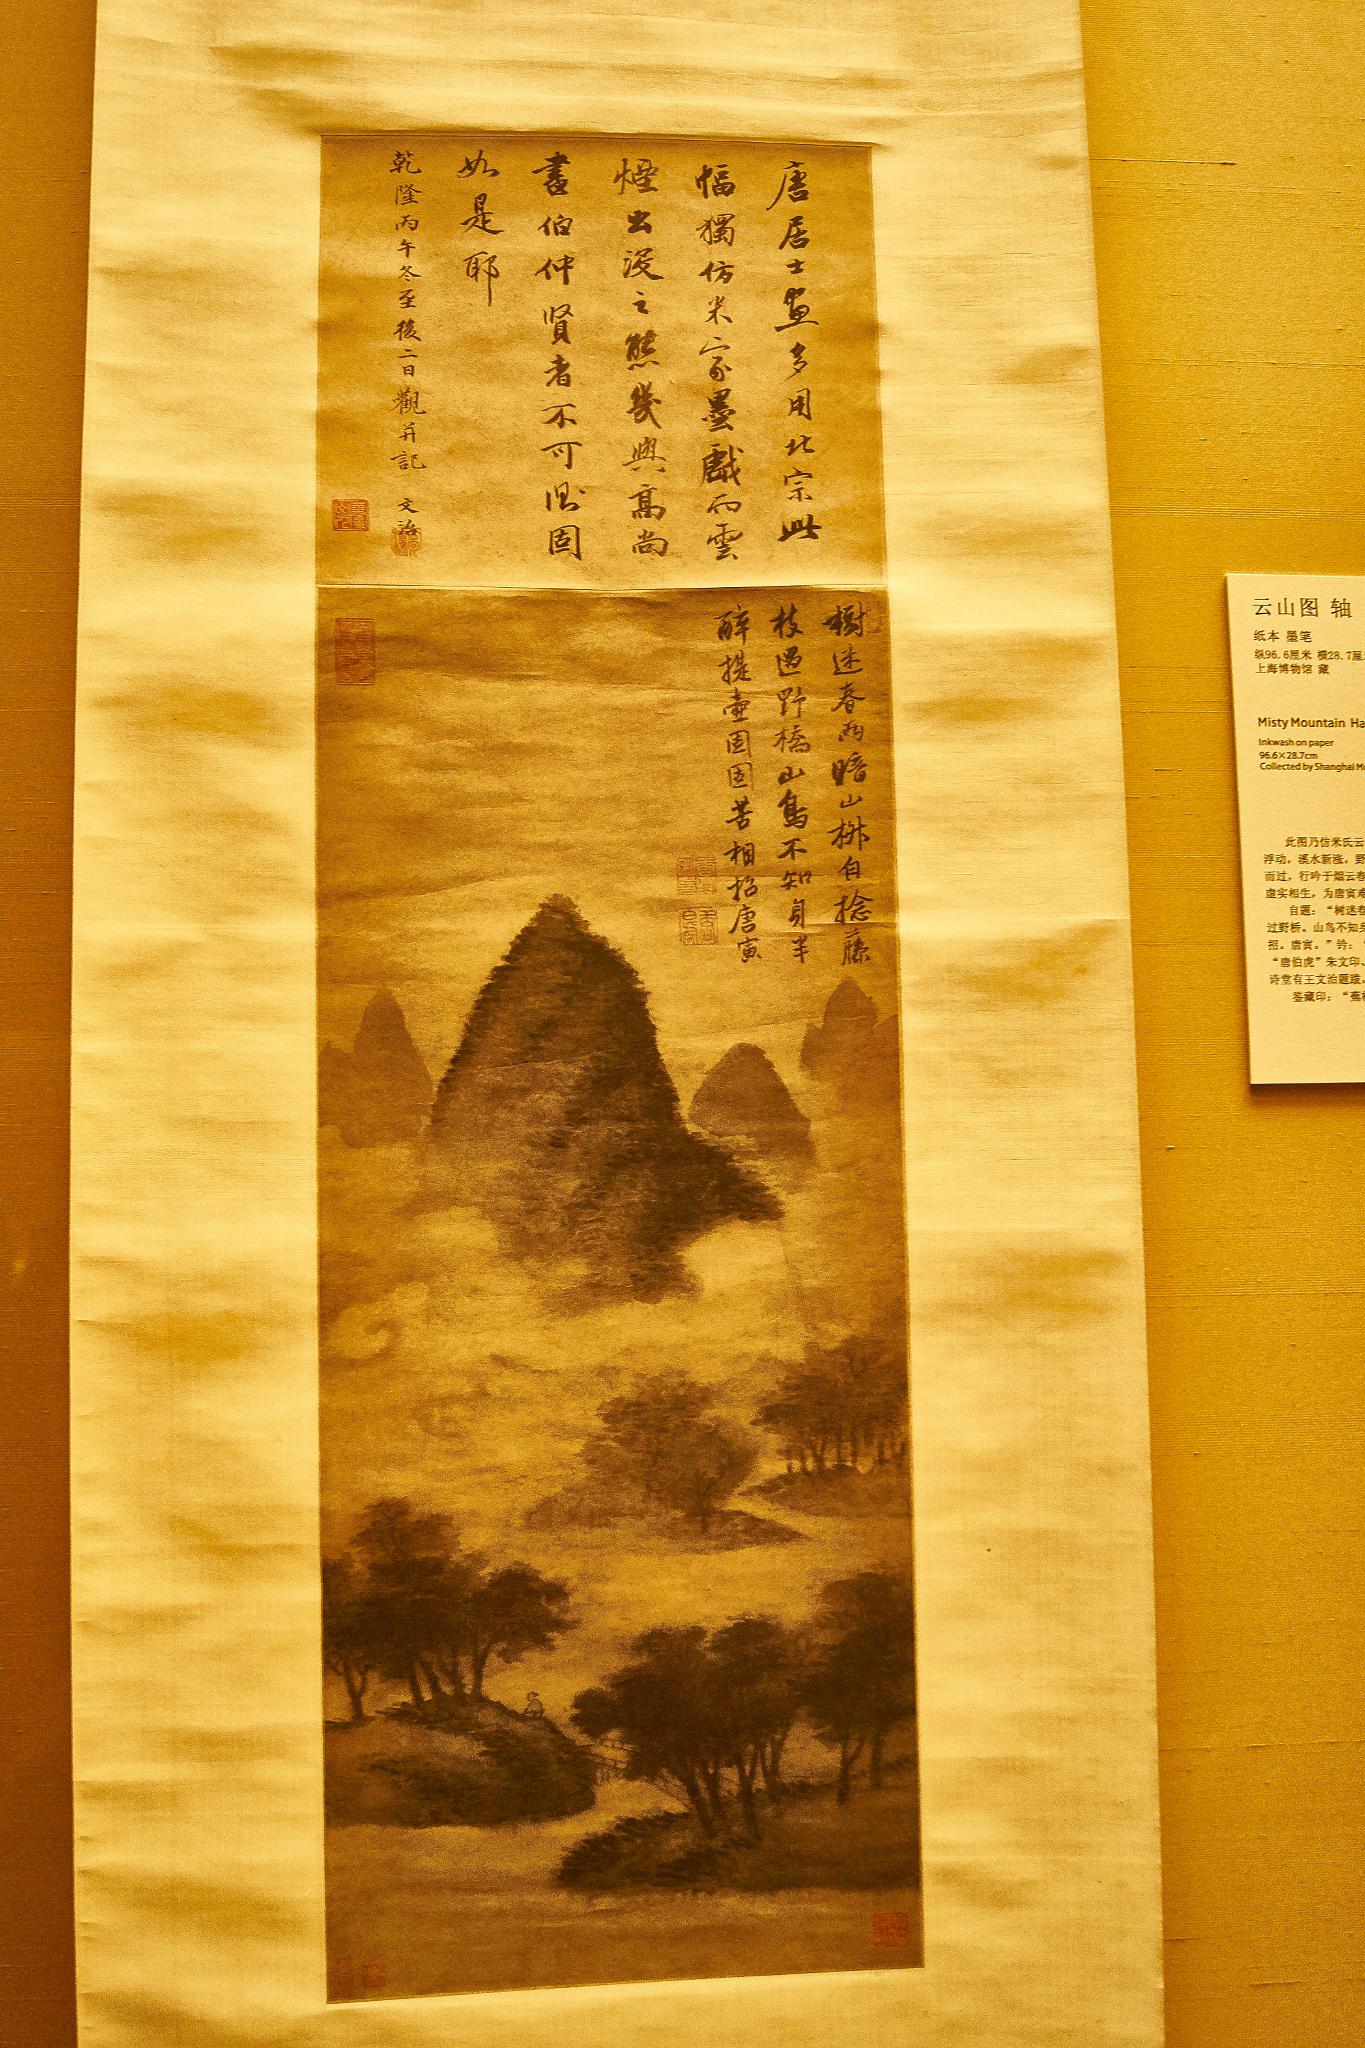 唐居士畫多用北宗此
幅獨仿米家墨戲而雲
煙出没之態幾與髙尚
書伯仲賢者不可測固
如是耶
乾隆丙午冬至後二日觀并記 文治
樹迷春雨暗山椒自捻藤
枝過野橋山鳥不知身半
醉提壷固固苦相招唐寅
云山图 轴
纸本 墨笔
纵96.6厘米 横28.7厘
上海博物馆 藏
Misty Mountain Ha
Inkwash on paper
96.6×28.7cm
Collected by Shanghai M
此图乃仿米氏云
浮动，溪水新涨，野
而过，行吟于烟云春
虚实相生，为唐寅难
自题：“树迷春
过野桥。山鸟不知身
招。唐寅。”钤：“
“唐伯虎”朱文印、
诗堂有王文治题跋。
鉴藏印：“蕉林